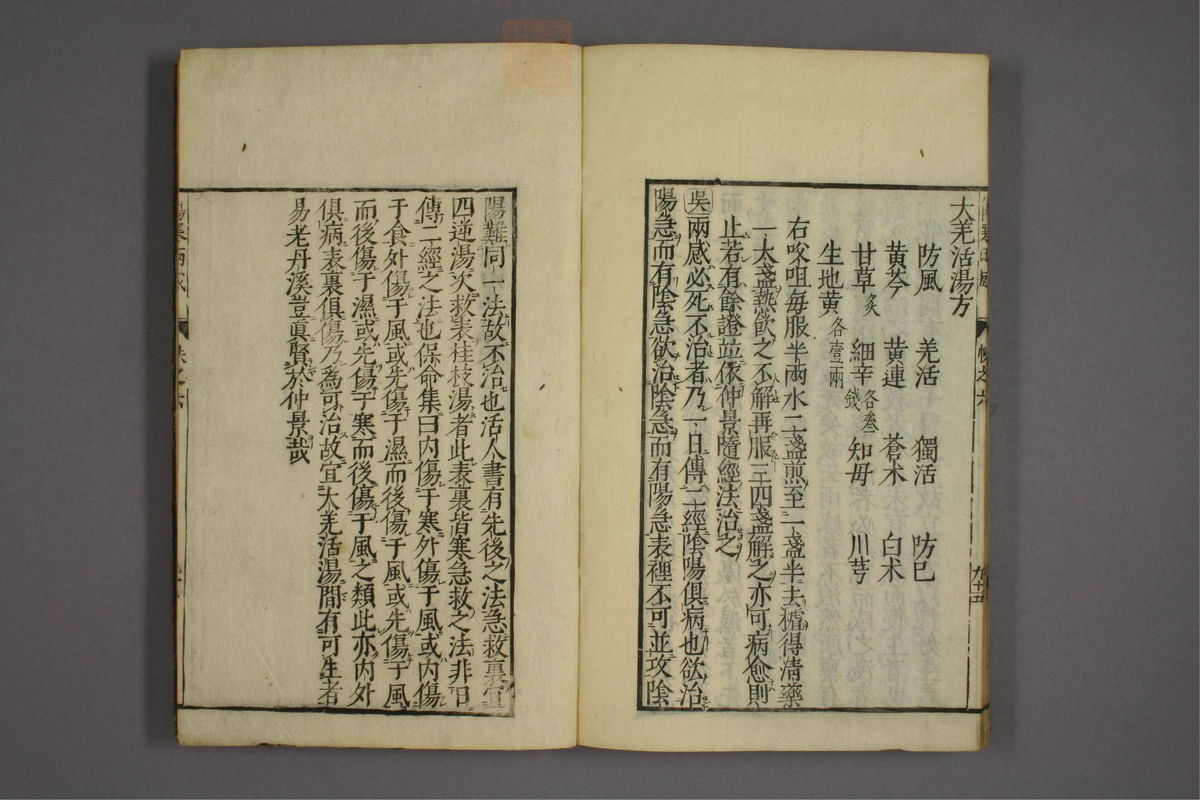 大羌活湯方
防風 羌活 獨活 防巳
黄芩 黄連 蒼术 白术
甘草炙 細辛各叁錢 知毋 川芎
生地黄各壹兩
右咬咀毎服半兩水二盞煎至一盞半去𣾀得清藥
一大盞熱飲之不解再服三四盞解之亦可病愈則
止若有餘證並依仲景隨經法治之
吳兩感必死不治者乃一日傳二經陰陽俱病也欲治
陽急而有陰急欲治陰急而有陽急表裡不可並攻陰
陽難同一法故不治也活人書有先後之法急救裏宜
四逆湯次救表桂枝湯者此表裏皆寒急救之法非日
傳二經之法也保命集曰内傷于寒外傷于風或内傷
于食外傷于風或先傷于濕而後傷于風或先傷于風
而後傷于濕或先傷于寒而後傷于風之類此亦内外
俱病表裏俱傷乃為可治故宜大羌活湯間有可生者
易老丹溪豈眞賢於仲景哉